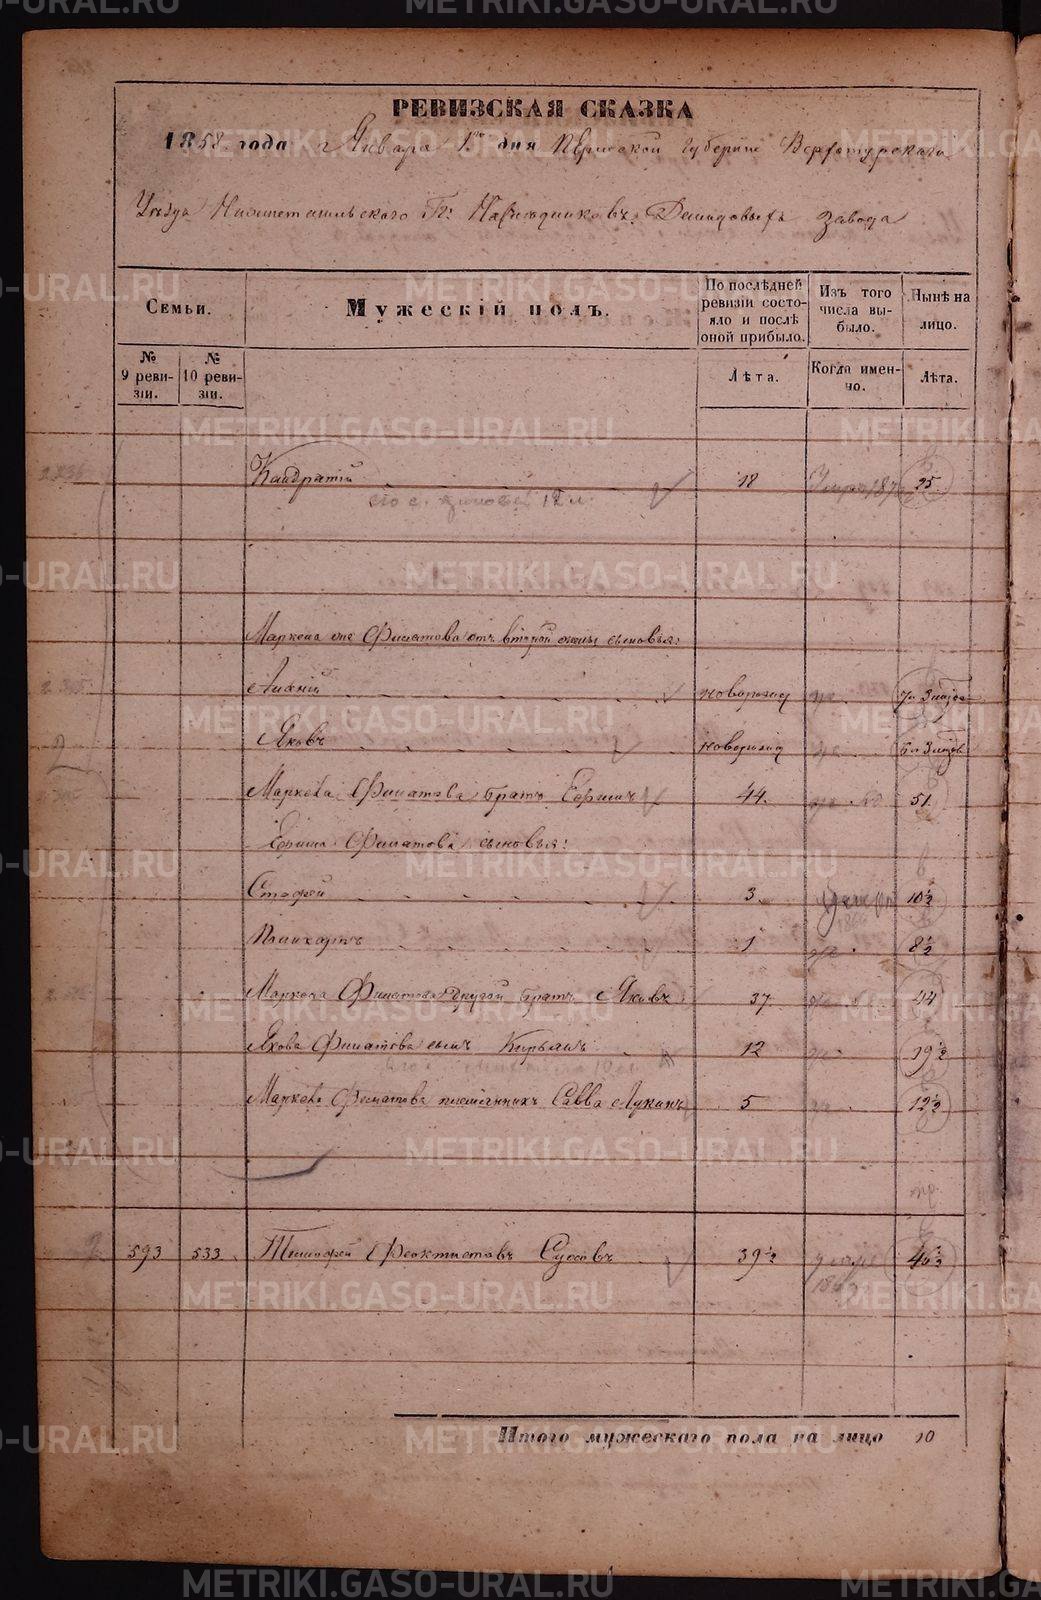 РЕВИЗСКАЯ СКАЗКА
1858 года Января 1го дня Пермской Губернiи Верхотурскаго
Уѣзда Нижнетагильскаго Гг: Наслѣдниковъ Демидовыхъ завода
Семьи.
Мужескiй полъ.
По послѣдней ревизiи состояло и послѣ оной прибыло.
Изъ того числа выбыло.
Нынѣ на лицо.
№ 9 ревизiи.
№ 10 ревизiи.
Лѣта.
Когда именно.
Лѣта.
Кандратiй 18 25
его с. 12 л.
Маркела же Филатова отъ второй жены сыновья:
новорожд
Яковъ новорожд
Маркела Филатова братъ Ефимъ 44. 51
Ефима Филатова сыновья:
3 10½
1 8½
Маркела Филатова другой братъ Яковъ 37 44
Якова Филатова сынъ Кирьянъ 12 19½
Маркела Филатова племянникъ Савва Лукинъ 5 12½
593 533 Тимофей Феоктистовъ Суховъ 39½ 46½
Итого мужескаго пола на лицо 10
METRIKI.GASO-URAL.RU